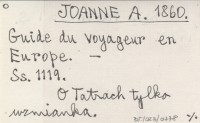 JOANNE A. 1860.
Guide du voyageur en
Europe. —
Ss. 1119.
O Tatrach tylko
wzmianka.
%